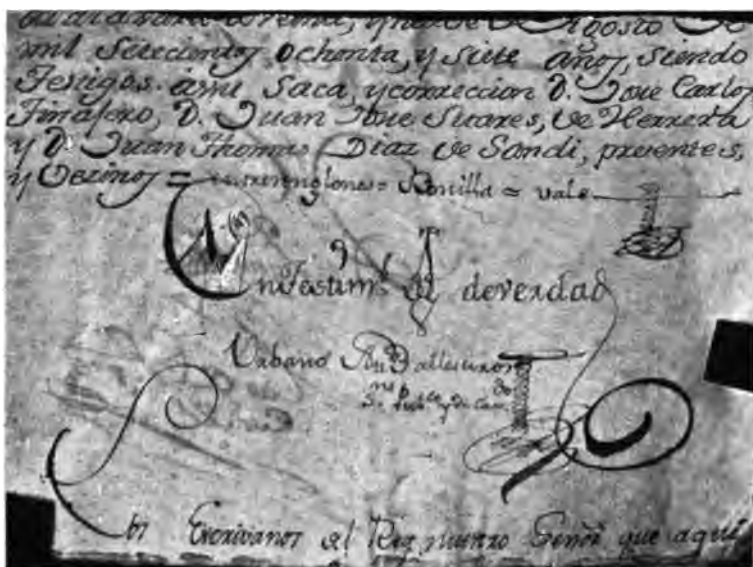 de Agosto de
mil setecientos ochenta, y siete años, siendo
Testigos. âmi Saca, y correccion D. Jose Carlos
Tinajero, D. Juan Jose Suares, de Herrera
y D. Juan Thomas Diaz de Sandi, precentes,
y Vecinos = entrerenglones = Bonilla = vale
En Testim.º de verdad
Urbano Ballesteros
Escrivanos el Rey nuestro Señor que aqui